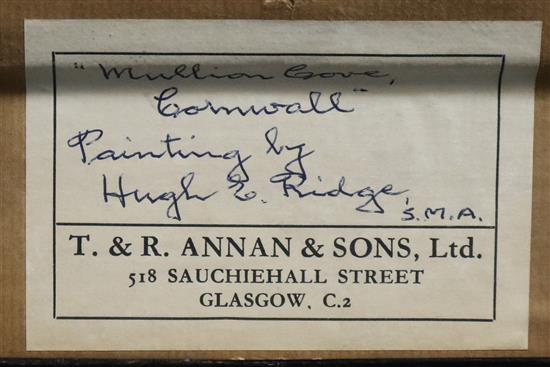 "Mullion Cove,
Cornwall"
Painting by
Hugh E. Ridge, S.M.A.
T. & R. ANNAN & SONS, Ltd.
518 SAUCHIEHALL STREET
GLASGOW, C.2